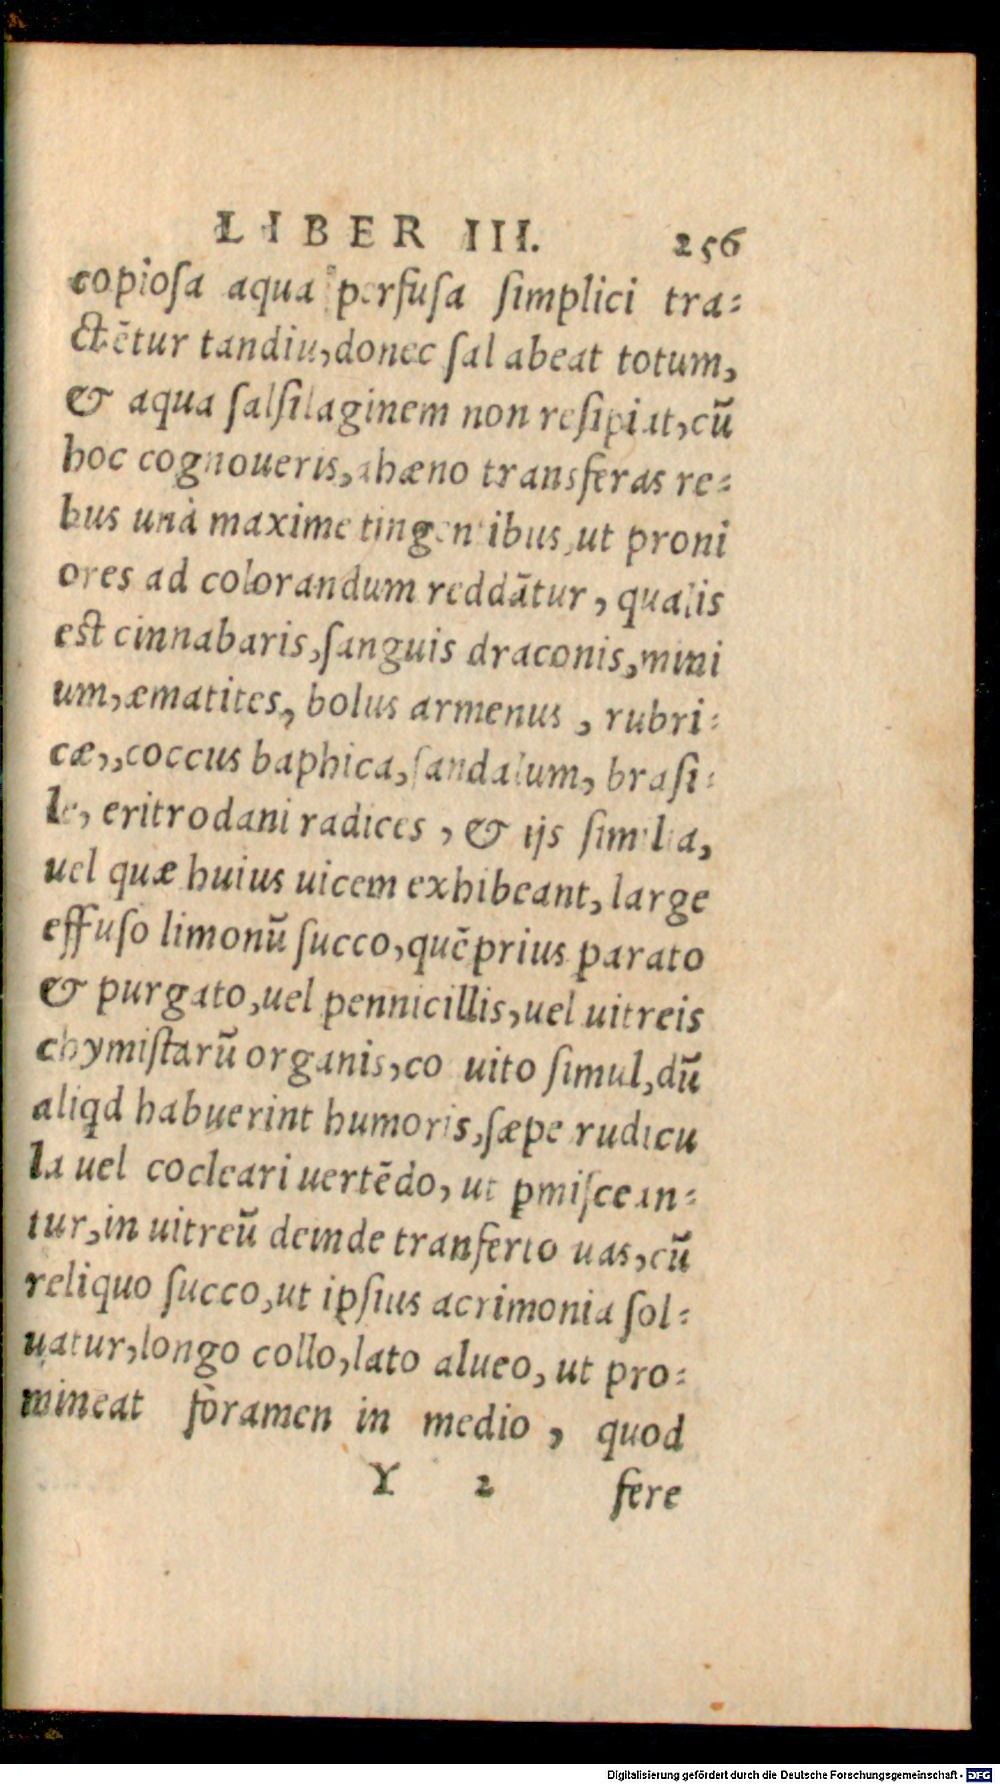 LIBER III. 256
copiosa aqua perfusa simplici tra-
ctētur tandiu, donec sal abeat totum,
& aqua salsilaginem non resipiat, cū
hoc cognoueris, ahæno transferas re-
bus unà maxime tingentibus, ut proni
ores ad colorandum reddātur, qualis
est cinnabaris, sanguis draconis, mini
um, æmatites, bolus armenus, rubri-
cæ,, coccus baphica, sandalum, brasi-
le, eritrodani radices, & ijs similia,
uel quæ huius uicem exhibeant, large
effuso limonū succo, quē prius parato
& purgato, uel pennicillis, uel uitreis
chymistarū organis, co uito simul, dū
aliqd habuerint humoris, sæpe rudicu
la uel cocleari uertēdo, ut pmiscean-
tur, in uitreū deinde tranferto uas, cū
reliquo succo, ut ipsius acrimonia sol-
uatur, longo collo, lato alueo, ut pro-
mineat foramen in medio, quod
Y 2 fere
Digitalisierung gefördert durch die Deutsche Forschungsgemeinschaft - DFG